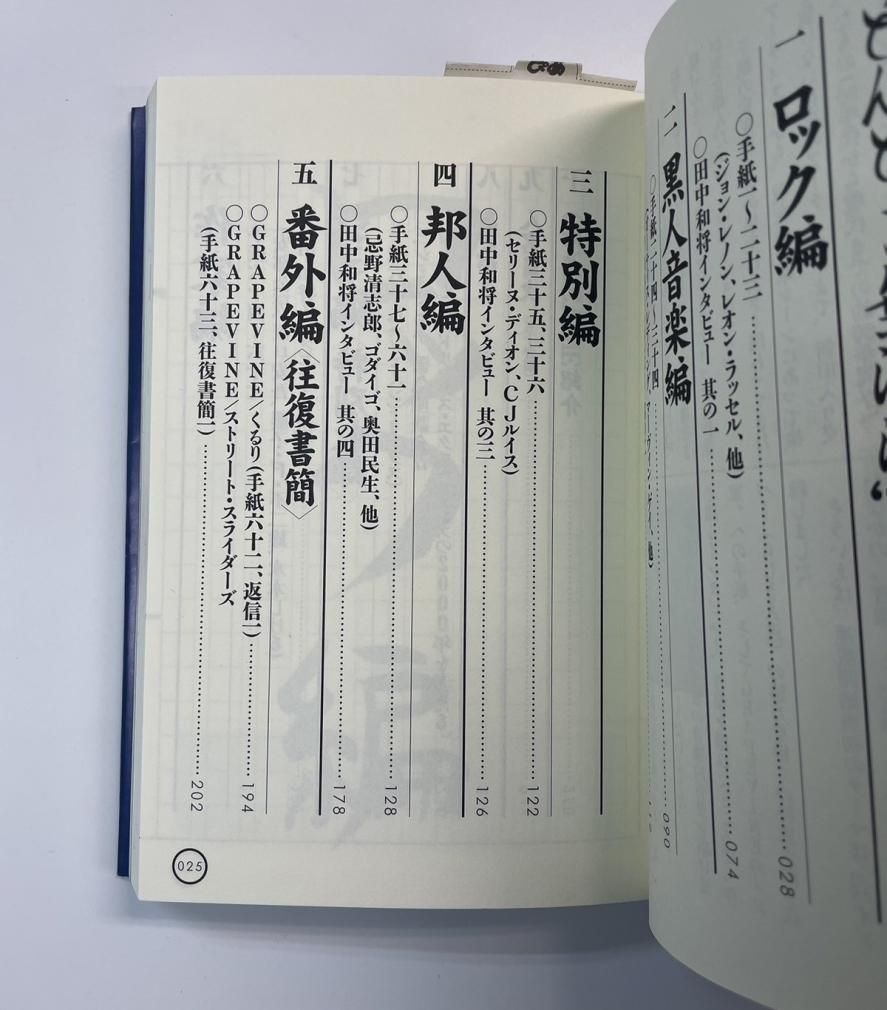 ぴあ
一 ロック編
○手紙一〜二十三 028
(ジョン・レノン、レオン・ラッセル、他)
○田中和将インタビュー 其の一 074
二 黒人音楽編
○手紙二十四〜三十四
他)
090
三 特別編
○手紙三十五、三十六 122
(セリーヌ・ディオン、CJルイス)
○田中和将インタビュー 其の三 126
四 邦人編
○手紙三十七〜六十一 128
(忌野清志郎、ゴダイゴ、奥田民生、他)
○田中和将インタビュー 其の四 178
五 番外編〈往復書簡〉
○GRAPEVINE/くるり(手紙六十二、返信一) 194
○GRAPEVINE/ストリート・スライダーズ
(手紙六十三、往復書簡一) 202
025